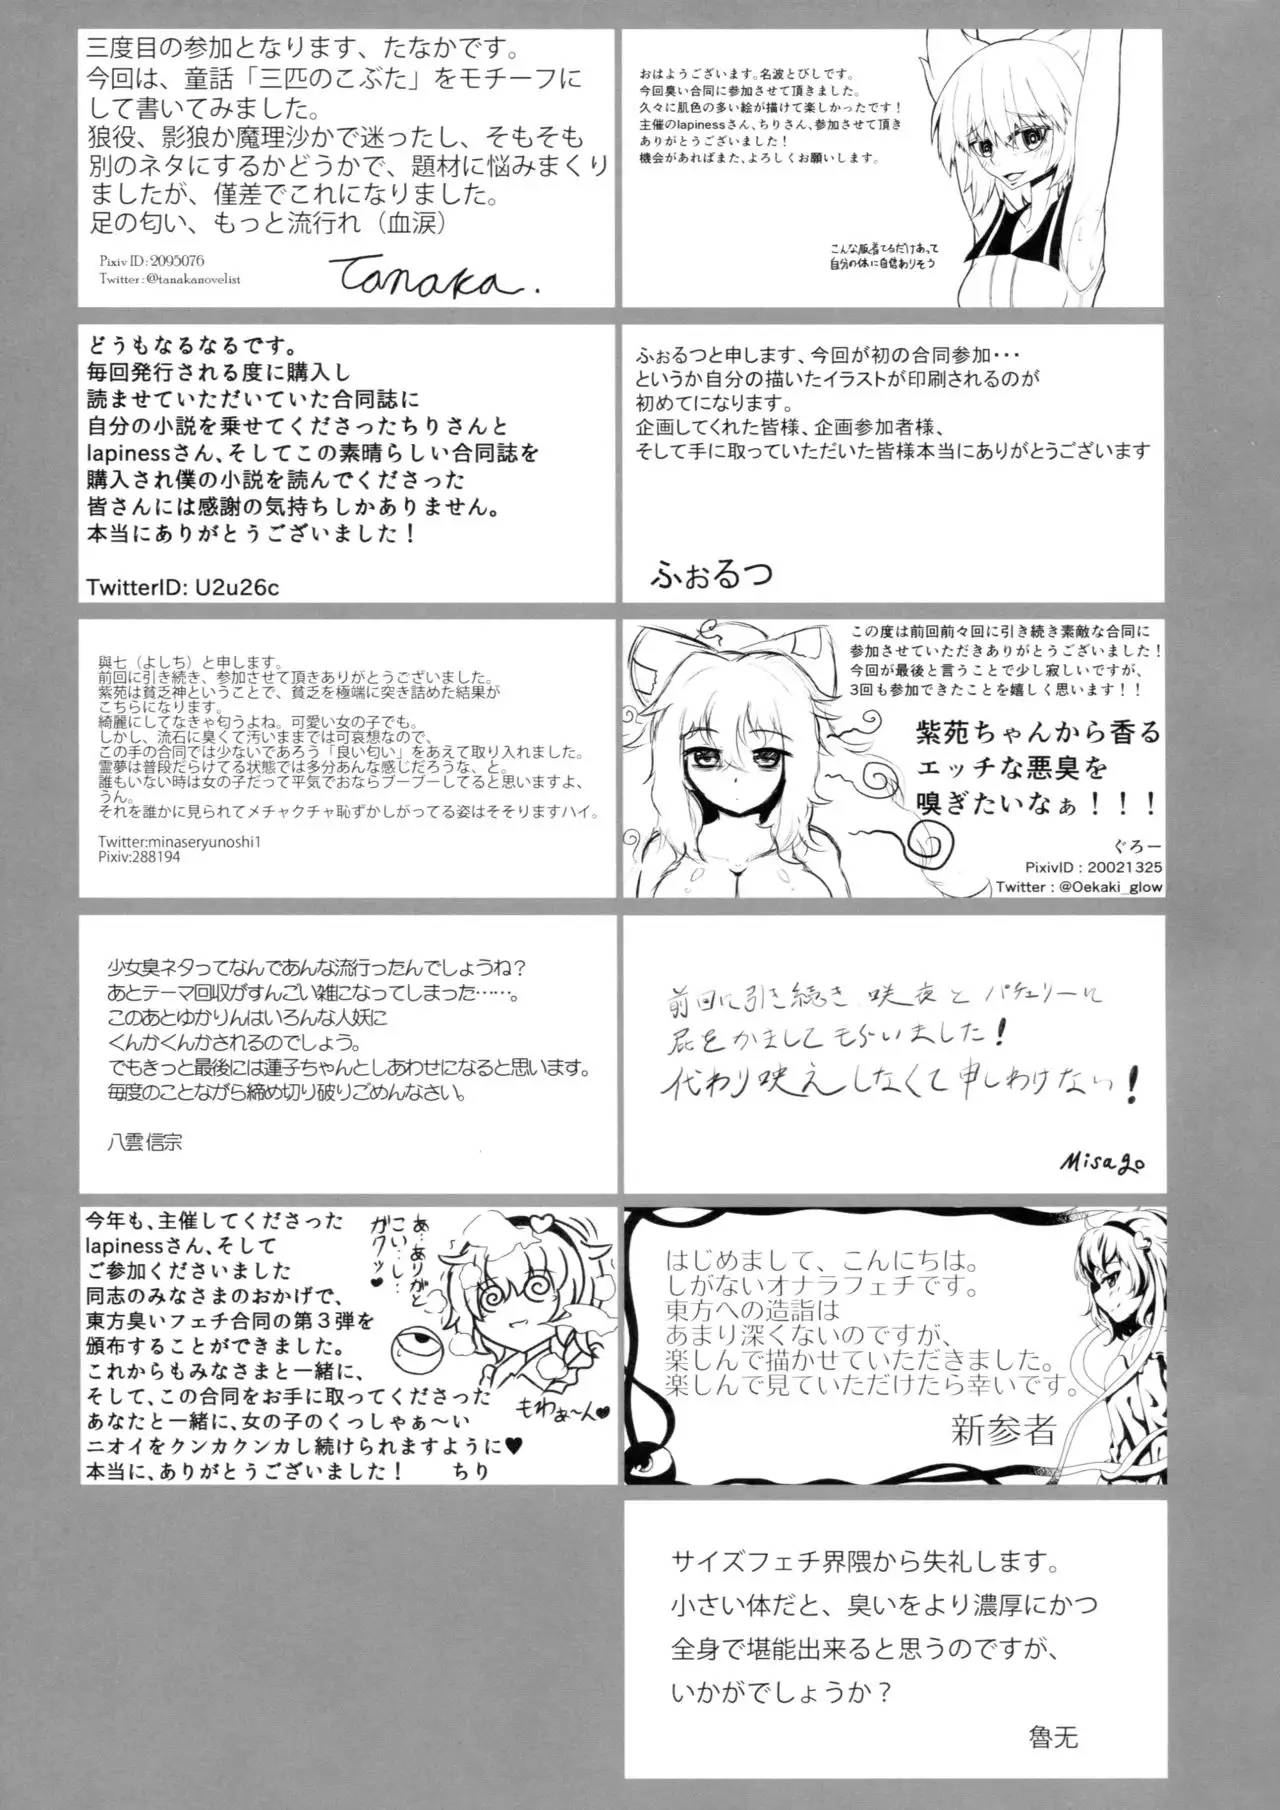 三度目の参加となります、たなかです。
今回は、童話「三匹のこぶた」をモチーフに
して書いてみました。
狼役、影狼か魔理沙かで迷ったし、そもそも
別のネタにするかどうかで、題材に悩みまくり
ましたが、僅差でこれになりました。
足の匂い、もっと流行れ（血涙）
Pixiv ID : 2095076
Twitter : @tanakanovelist
Tanaka.
おはようございます。名波とびしです。
今回臭い合同に参加させて頂きました。
久々に肌色の多い絵が描けて楽しかったです！
主催のlapinessさん、ちりさん、参加させて頂き
ありがとうございました！
機会があればまた、よろしくお願いします。
こんな服着てるだけあって
自分の体に自信ありそう
どうもなるなるです。
毎回発行される度に購入し
読ませていただいていた合同誌に
自分の小説を乗せてくださったちりさんと
lapinessさん、そしてこの素晴らしい合同誌を
購入され僕の小説を読んでくださった
皆さんには感謝の気持ちしかありません。
本当にありがとうございました！
TwitterID: U2u26c
ふぉるつと申します、今回が初の合同参加･･･
というか自分の描いたイラストが印刷されるのが
初めてになります。
企画してくれた皆様、企画参加者様、
そして手に取っていただいた皆様本当にありがとうございます
ふぉるつ
與七（よしち）と申します。
前回に引き続き、参加させて頂きありがとうございました。
紫苑は貧乏神ということで、貧乏を極端に突き詰めた結果が
こちらになります。
綺麗にしてなきゃ匂うよね。可愛い女の子でも。
しかし、流石に臭くて汚いままでは可哀想なので、
この手の合同では少ないであろう「良い匂い」をあえて取り入れました。
霊夢は普段だらけてる状態では多分あんな感じだろうな、と。
誰もいない時は女の子だって平気でおならブーブーしてると思いますよ、
うん。
それを誰かに見られてメチャクチャ恥ずかしがってる姿はそそりますハイ。
Twitter:minaseryunoshi1
Pixiv:288194
この度は前回前々回に引き続き素敵な合同に
参加させていただきありがとうございました！
今回が最後と言うことで少し寂しいですが、
3回も参加できたことを嬉しく思います！！
紫苑ちゃんから香る
エッチな悪臭を
嗅ぎたいなぁ！！！
ぐろー
PixivID : 20021325
Twitter : @Oekaki_glow
少女臭ネタってなんであんな流行ったんでしょうね？
あとテーマ回収がすんごい雑になってしまった……。
このあとゆかりんはいろんな人妖に
くんかくんかされるのでしょう。
でもきっと最後には蓮子ちゃんとしあわせになると思います。
毎度のことながら締め切り破りごめんなさい。
八雲信宗
前回に引き続き、咲夜とパチュリーに
屁をかましてもらいました！
代わり映えしなくて申しわけない！
Misago
今年も、主催してくださった
lapinessさん、そして
ご参加くださいました
同志のみなさまのおかげで、
東方臭いフェチ合同の第３弾を
頒布することができました。
これからもみなさまと一緒に、
そして、この合同をお手に取ってくださった
あなたと一緒に、女の子のくっしゃぁ〜い
ニオイをクンカクンカし続けられますように♥
本当に、ありがとうございました！　ちり
あ…ありがと
ごい…し…
ガクッ♥
もわぁ〜ん♥
はじめまして、こんにちは。
しがないオナラフェチです。
東方への造詣は
あまり深くないのですが、
楽しんで描かせていただきました。
楽しんで見ていただけたら幸いです。
新参者
サイズフェチ界隈から失礼します。
小さい体だと、臭いをより濃厚にかつ
全身で堪能出来ると思うのですが、
いかがでしょうか？
魯无